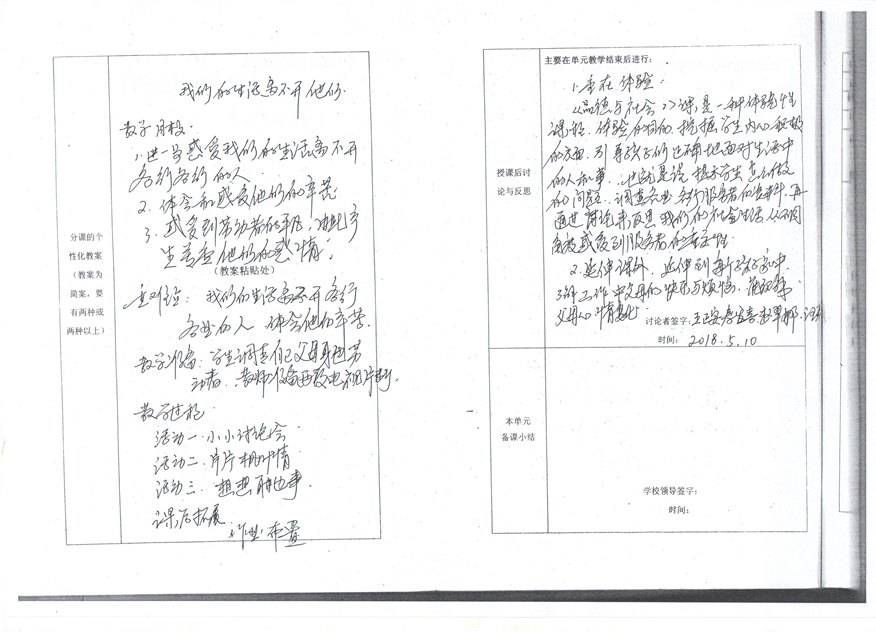 我们的生活离不开他们
教学目标:
1.进一步感受我们的生活离不开
各行各行的人
2.体会和感受他们的辛苦
3.感受到劳动者的
生 他们的感情;
分课的个
性化教案
(教案为
简案,要
有两种或
两种以上)
(教案粘贴处)
重难点: 我们的生活离不开各行
各业的人 体会他们辛苦.
教学准备: 学生调查自己父母身边劳
动者. 教师准备 电视片
教学过程
活动一.小小讨论会
活动二.片片 情
活动三. 想想 事.
课后拓展
作业布置
主要在单元教学结束后进行:
1.重在体验:
《品德与社会》课是一种体验性
课程. 体验的目的. 挖掘学生内心积极
的方面. 引导孩子们 地面对生活中
授课后讨
论与反思
的人和事. 也就是说 学生怎么做
的问题. 调查各业各行服务者的 事件.再
通过讨论来反思我们的社会生活 从不同
角度感受到服务者的重要性.
2.延伸课外. 延伸到每个孩子家中.
了解工作中父母的快乐与烦恼.
父母心
讨论者签字:
时间: 2018.5.10
本单元
备课小结
学校领导签字:
时间: